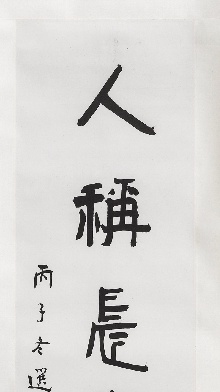 人稱長
丙子冬選